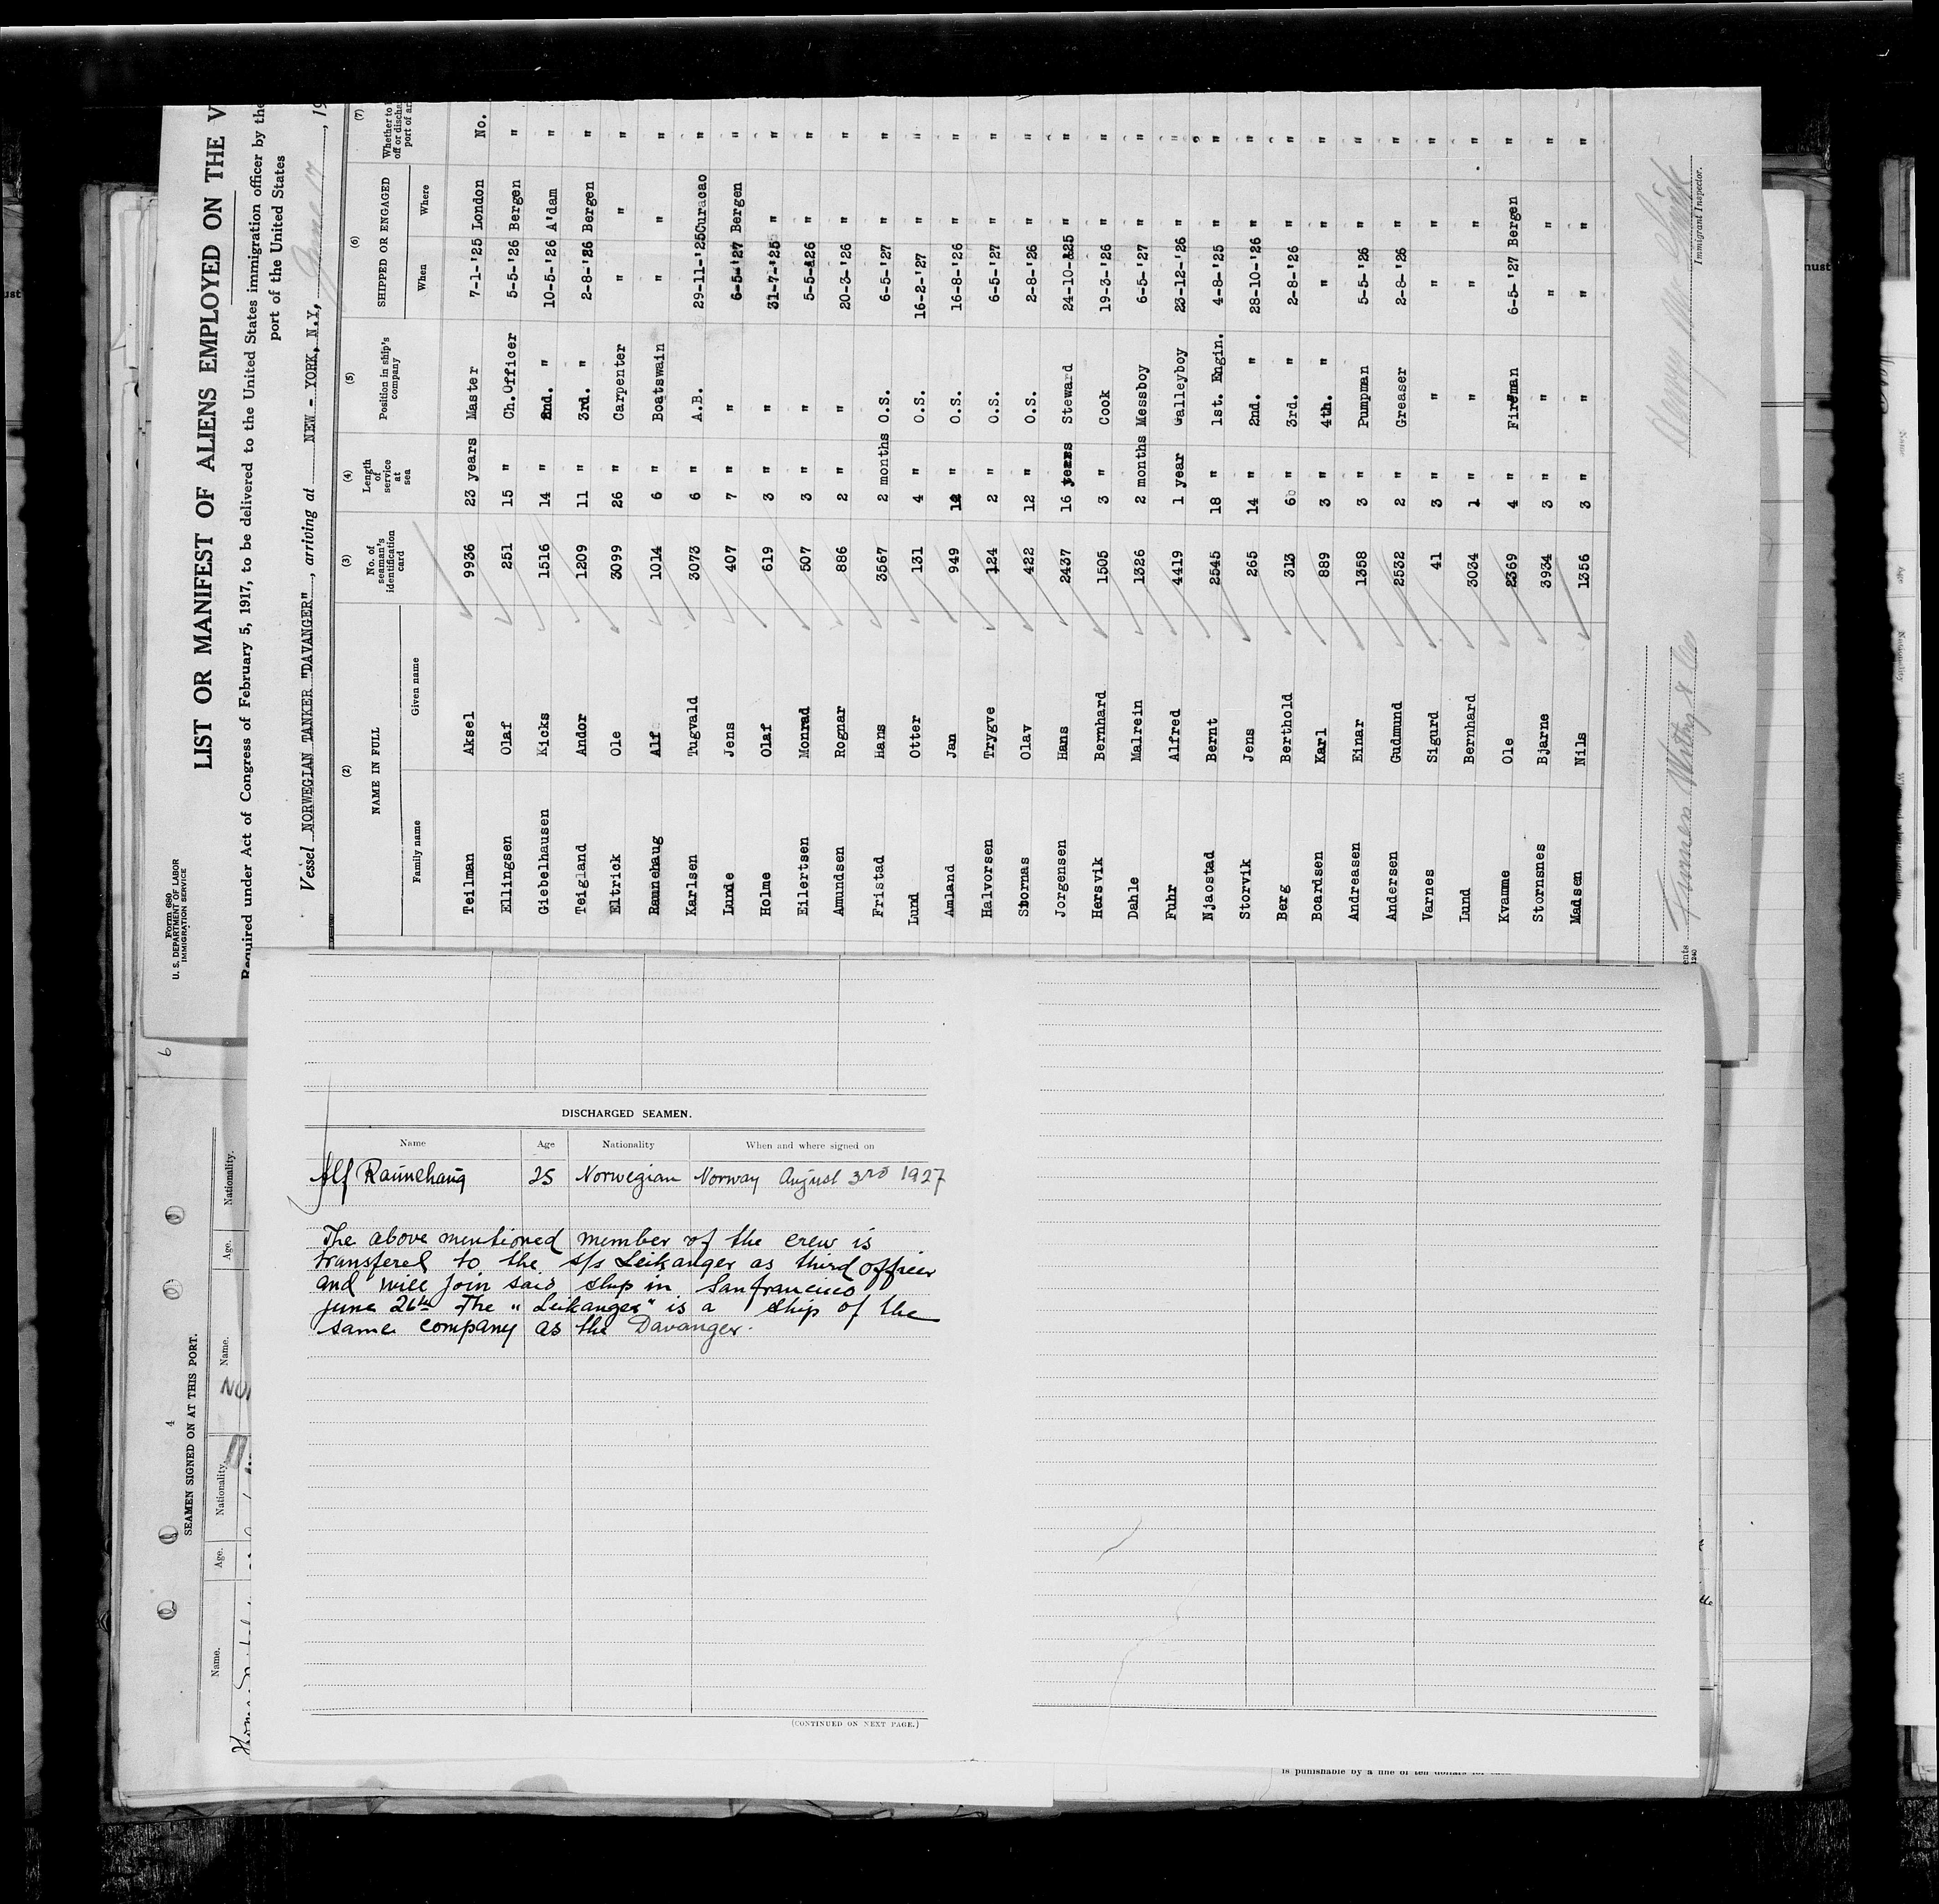 Form 680
U. S. DEPARTMENT OF LABOR
IMMIGRATION SERVICE
LIST OR MANIFEST OF ALIENS EMPLOYED ON THE V
Required under Act of Congress of February 5, 1917, to be delivered to the United States immigration officer by the
port of the United States
Vessel NORWEGIAN TANKER "DAVANGER", arriving at NEW - YORK, N.Y, June 17, 19
(2) (3) (4) (5) (6) (7)
NAME IN FULL No. of seaman's identification card Length of service at sea Position in ship's company SHIPPED OR ENGAGED Whether to
off or discha
port of ar
Family name Given name When Where
Teilman Aksel 9936 23 years Master 7-1-'25 London No.
Ellingsen Olaf 251 15 " Ch.Officer 5-5-'26 Bergen "
Giebelhausen Kicks 1516 14 " 2nd. " 10-5-'26 A'dam "
Teigland Andor 1209 11 " 3rd. " 2-8-'26 Bergen "
Eltrick Ole 3099 26 " Carpenter " " "
Rannehaug Alf 1014 6 " Boatswain " " "
Karlsen Tugvald 3073 6 " A.B. 29-11-'25 Curacao "
Lunde Jens 407 7 " " 6-5-'27 Bergen "
Holme Olaf 619 3 " " 31-7-'25 " "
Eilertsen Monrad 507 3 " " 5-5-26 " "
Amundsen Rognar 886 2 " " 20-3-'26 " "
Fristad Hans 3567 2 months O.S. 6-5-'27 " "
Lund Otter 131 4 " O.S. 16-2-'27 "
Amland Jan 949 12 " O.S. 16-8-'26 " "
Halvorsen Trygve 124 2 " O.S. 6-5-'27 " "
Stornas Olav 422 12 " O.S. 2-8-'26 " "
Jorgensen Hans 2437 16 years Steward 24-10-25 " "
Hersvik Bernhard 1505 3 " Cook 19-3-'26 " "
Dahle Malrein 1326 2 months Messboy 6-5-'27 " "
Fuhr Alfred 4419 1 year Galleyboy 23-12-'26 " "
Njaostad Bernt 2545 18 " 1st. Engin. 4-8-'25 " "
Storvik Jens 265 14 " 2nd. " 28-10-'26 " "
Berg Berthold 313 6 " 3rd. " 2-8-'26 " "
Boardsen Karl 889 3 " 4th. " " " "
Andreasen Einar 1358 3 " Pumpman 5-5-'26 " "
Andersen Gudmund 2532 2 " Greaser 2-8-'26 " "
Varnes Sigurd 41 3 " " " " "
Lund Bernhard 3034 1 " " " " "
Kvamme Ole 2369 4 " Fireman 6-5-'27 Bergen "
Stornsnes Bjarne 3934 3 " " " " "
Madsen Nils 1356 3 " " " " "
ents Furness Withy & Co
Immigrant Inspector.
DISCHARGED SEAMEN.
Name Age Nationality When and where signed on
Alf Raunehaug 25 Norwegian Norway August 3rd 1927
The above mentioned member of the crew is
transfered to the s/s Leikanger as third officer
and will join said ship in Sanfrancisco
june 26th The "Leikanger" is a ship of the
same company as the Davanger.
(CONTINUED ON NEXT PAGE.)
4
SEAMEN SIGNED ON AT THIS PORT.
Name. Age. Nationality. Name. Age. Nationality.
6
is punishable by a fine of ten dollars for